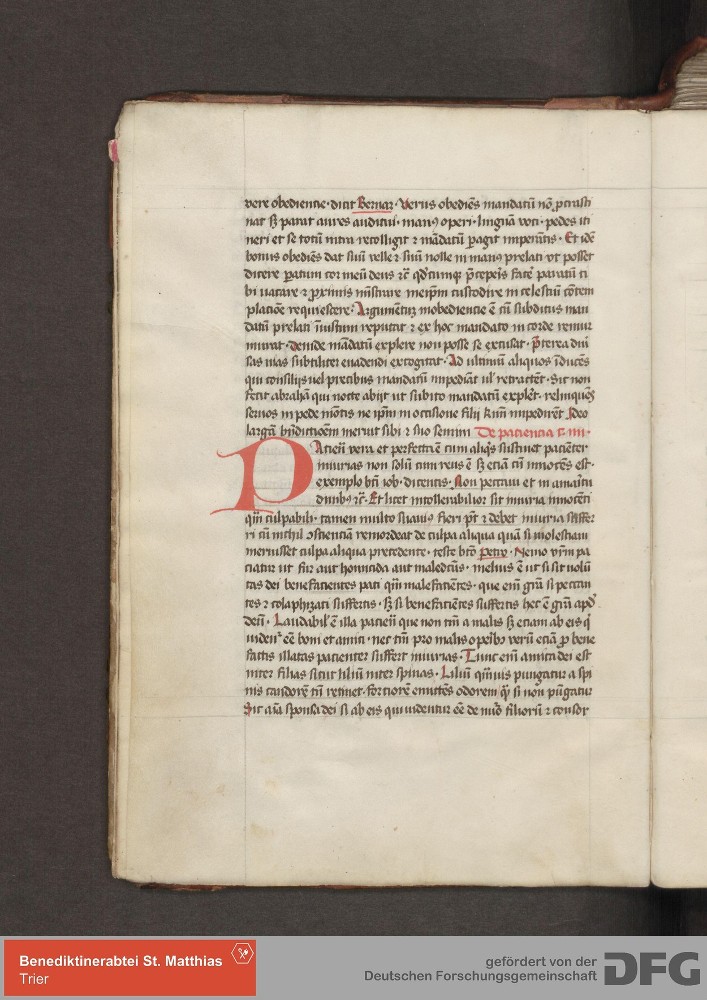 vere obediencie · dicit Bernar · Verus obediēs mandatū nō ꝓcrasti
nat sꝫ parat aures auditui · manꝰ operi · linguā voci · pedes iti
neri et se totū intra recolligit ⁊ mādatū ꝑagit imperātis · Et idē
bonus obediēs dat suū velle ⁊ suū nolle in manꝰ prelati vt posset
dicere ꝑatum cor meū deus ⁊c̄ qd̄cumqꝫ p̄ceperis facē paratū ti
bi vacare ⁊ ꝓximis mīstrare meip̄m custodire in celestiū cōtem
placiōe requiescere · Argumentū inobediencie ē cū subditus man
datū prelati iniustum reputat ⁊ ex hoc mandato in corde remur
murat · deinde mādatū explere non posse se excusat · p̄terea diū
sas vias subtiliter euadendi excogitat · Ad ultimū aliquos īducēs
qui consilijs uel precibus mandatū impediāt ul̓ retractēt · Sic non
fecit abrahā qui nocte abijt ut subito mandatū explēt · relinquēs
seruos in pede mōtis ne ip̄m in occisione filij impedirēt · Ideo
largā bn̄dictioēm meruit sibi ⁊ suo semini De paciencia c̄ iii ·
Pacien̄ vera et perfecta ē cum aliqͥs sustinet paciēter
iniurias non solū cum reus ē sꝫ eciā cū innocēs est ·
exemplo bt̄i iob · dicentis · Non peccaui et in amaritu
dinibꝰ ⁊c̄ · Et licet intollerabilior sit iniuria innocēti
qm̄ culpabili · tamen multo suauiꝰ fieri pt̄ ⁊ debet iniuria suffer
ri cū nichil ꝯscienciā remordeat de culpa aliqua quā si molestiam
meruisset culpa aliqua precedente · teste bt̄o Petro · Nemo vr̄m pa
ciatur ut fur aut homicida aut maledicūs · melius ē ut si sit volū
tas dei benefacientes pati qm̄ malefaciētes · que em̄ grā si peccan
tes ⁊ colaphizati suffertis · sꝫ si benefaciētes suffertis hec ē grā apd̓
deū · Laudabil̓ ē illa pacien̄ que non tm̄ a malis sꝫ eciam ab eis qͥ
videnͭ eē boni et amici · nec tm̄ pro malis oꝑibꝰ verū eciā ꝓ bene
factis illatas pacienter suffert iniurias · Tunc em̄ amica dei est
inter filias sicut liliū inter spinas · Liliū qm̄uis pungatur a spi
nis candorē tn̄ retinet · forciorē emittēs odorem qͣꝫ si non pūgatur
Sic aīa sponsa dei si ab eis qui videntur eē de nūo filiorū ⁊ consor
Benediktinerabtei St. Matthias
Trier
gefördert von der
Deutschen Forschungsgemeinschaft
DFG